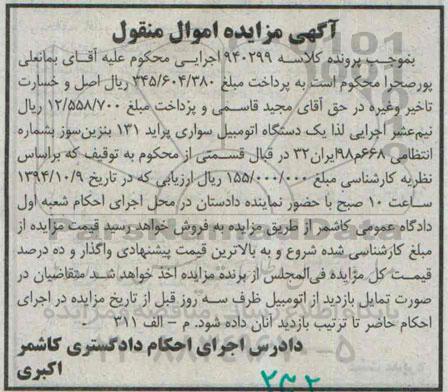 آگهی مزایده اموال منقول
بموجب پرونده کلاسه ۹۴۰۲۹۹ اجرایی محکوم علیه آقای بمانعلی
پورصحرا محکوم است به پرداخت مبلغ ۳۴۵/۶۰۴/۳۸۰ ریال اصل و خسارت
تاخیر وغیره در حق آقای مجید قاسمی و پرداخت مبلغ ۱۲/۵۵۸/۷۰۰ ریال
نیم‌عشر اجرایی لذا یک دستگاه اتومبیل سواری پراید ۱۳۱ بنزین‌سوز بشماره
انتظامی ۶۶۸م۹۸ایران۳۲ در قبال قسمتی از محکوم به توقیف که براساس
نظریه کارشناسی مبلغ ۱۵۵/۰۰۰/۰۰۰ ریال ارزیابی که در تاریخ ۱۳۹۴/۱۰/۹
ساعت ۱۰ صبح با حضور نماینده دادستان در محل اجرای احکام شعبه اول
دادگاه عمومی کاشمر از طریق مزایده به فروش خواهد رسید قیمت مزایده از
مبلغ کارشناسی شده شروع و به بالاترین قیمت پیشنهادی واگذار و ده درصد
قیمت کل مزایده فی‌المجلس از برنده مزایده اخذ خواهد شد متقاضیان در
صورت تمایل بازدید از اتومبیل ظرف سه روز قبل از تاریخ مزایده در اجرای
احکام حاضر تا ترتیب بازدید آنان داده شود. م - الف ۳۱۱
دادرس اجرای احکام دادگستری کاشمر
اکبری